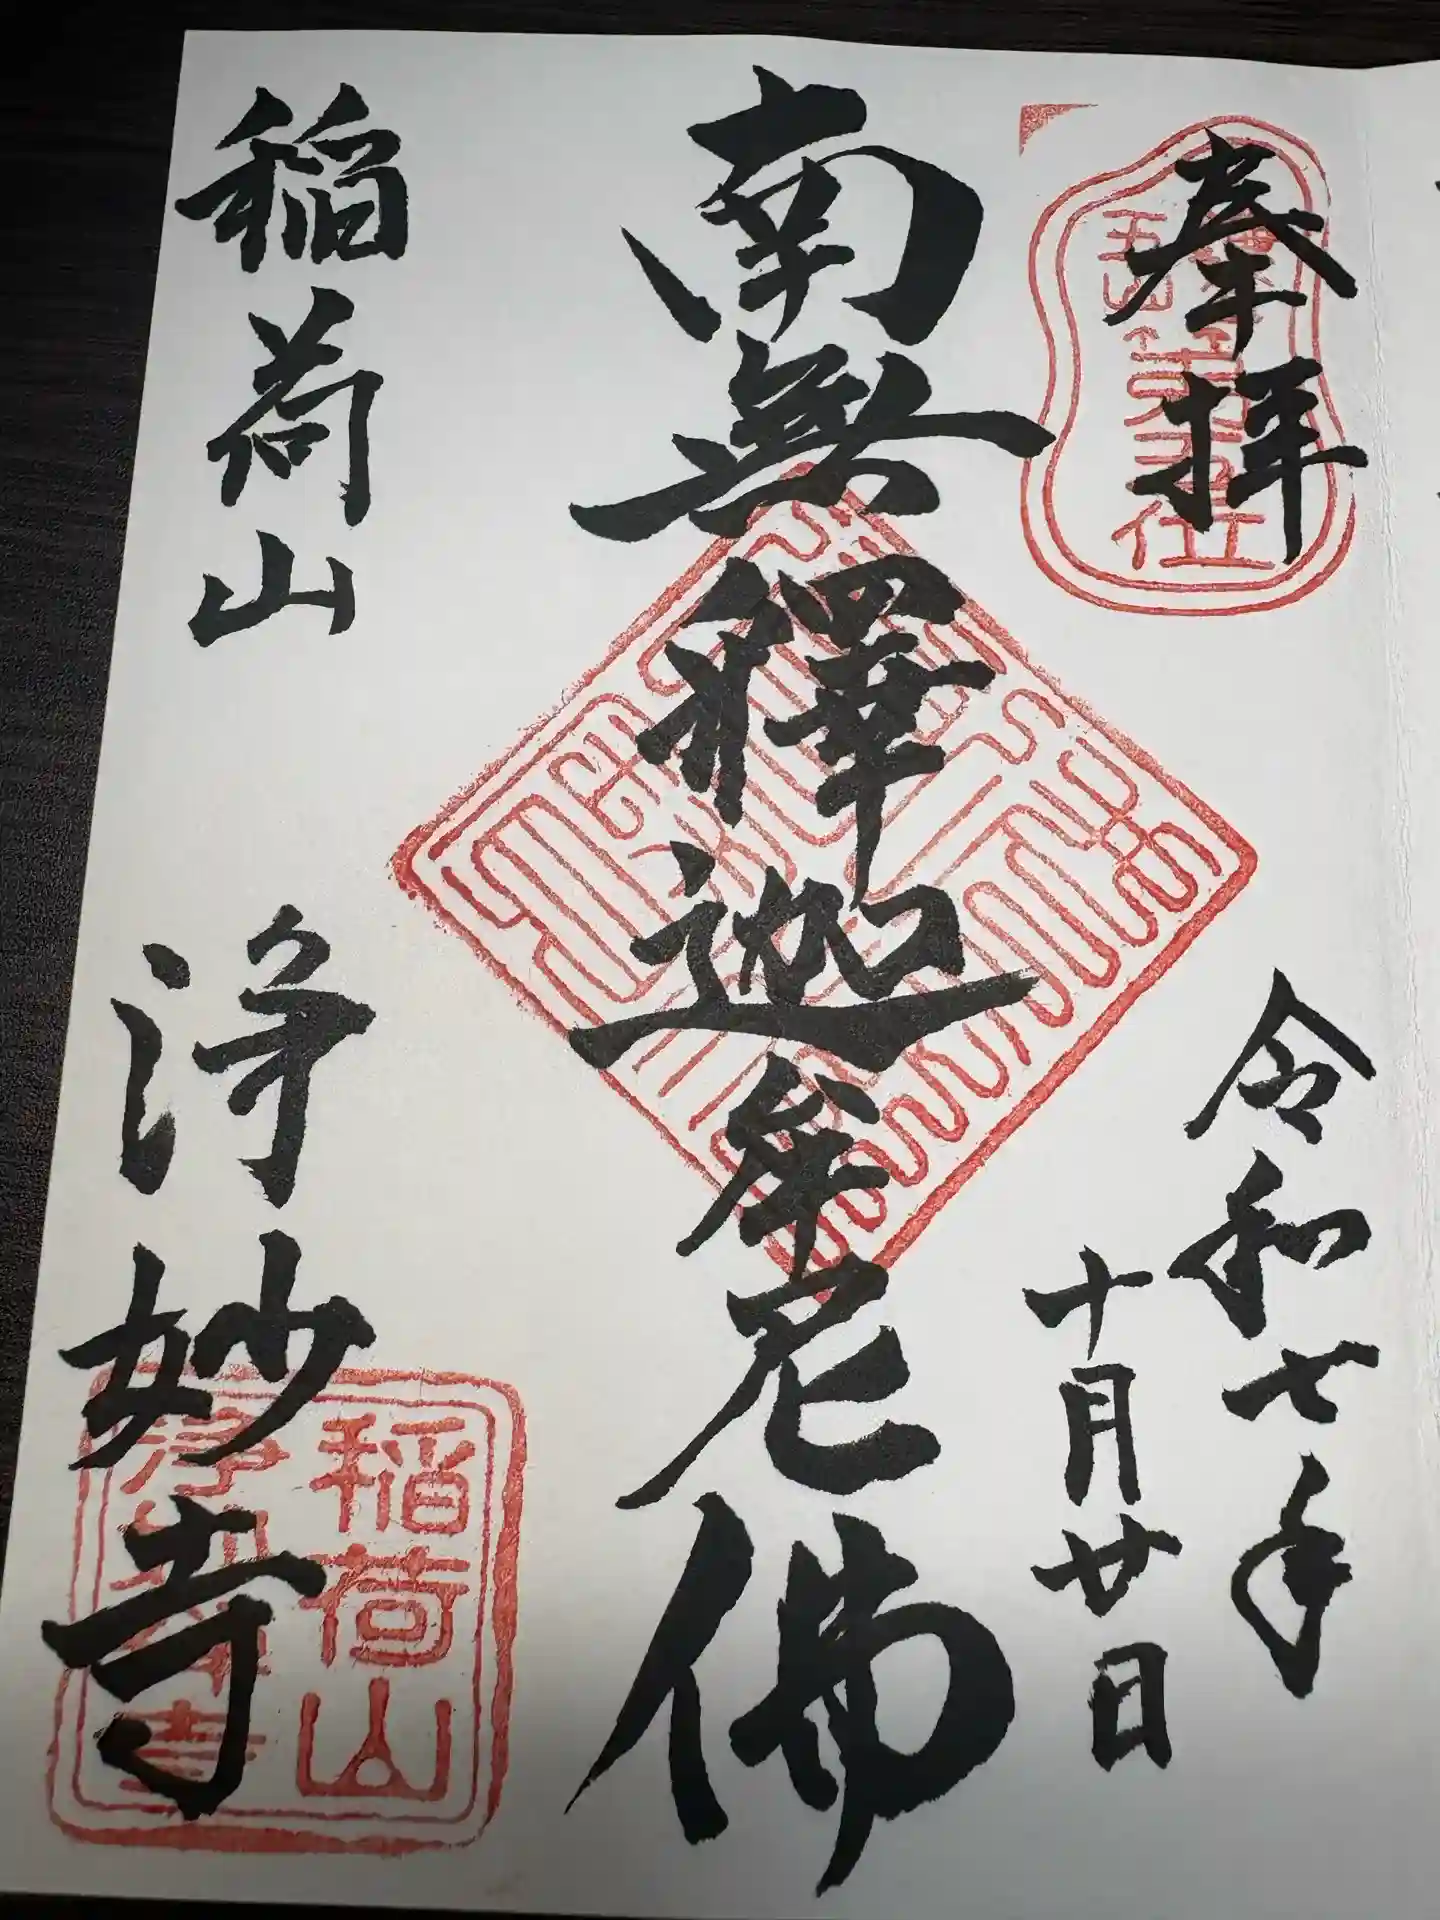 奉拝
令和七年
十月廿日
南無釋迦牟尼佛
稲荷山 浄妙寺
稲荷山